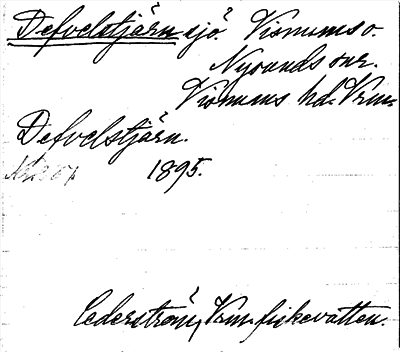 Defvelstjärn sjö Visnums o.
Nysunds snr.
Visnums hd. Vrm.
Defvelstjärn.
1895.
Cederström, Vrm. fiskevatten.